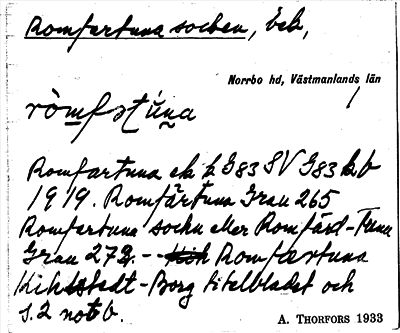 Romfartuna socken, beb,
Norrbo hd, Västmanlands län
Romfartuna ek k G83 SV G83 kb
1919. Romfärtuna Grau 265
Romfartuna sockn eller Romfärd-Tuna
Grau 272. -- Romfartuna
Kihlstedt-Borg titelbladet och
s. 2 not b.
A. THORFORS 1933